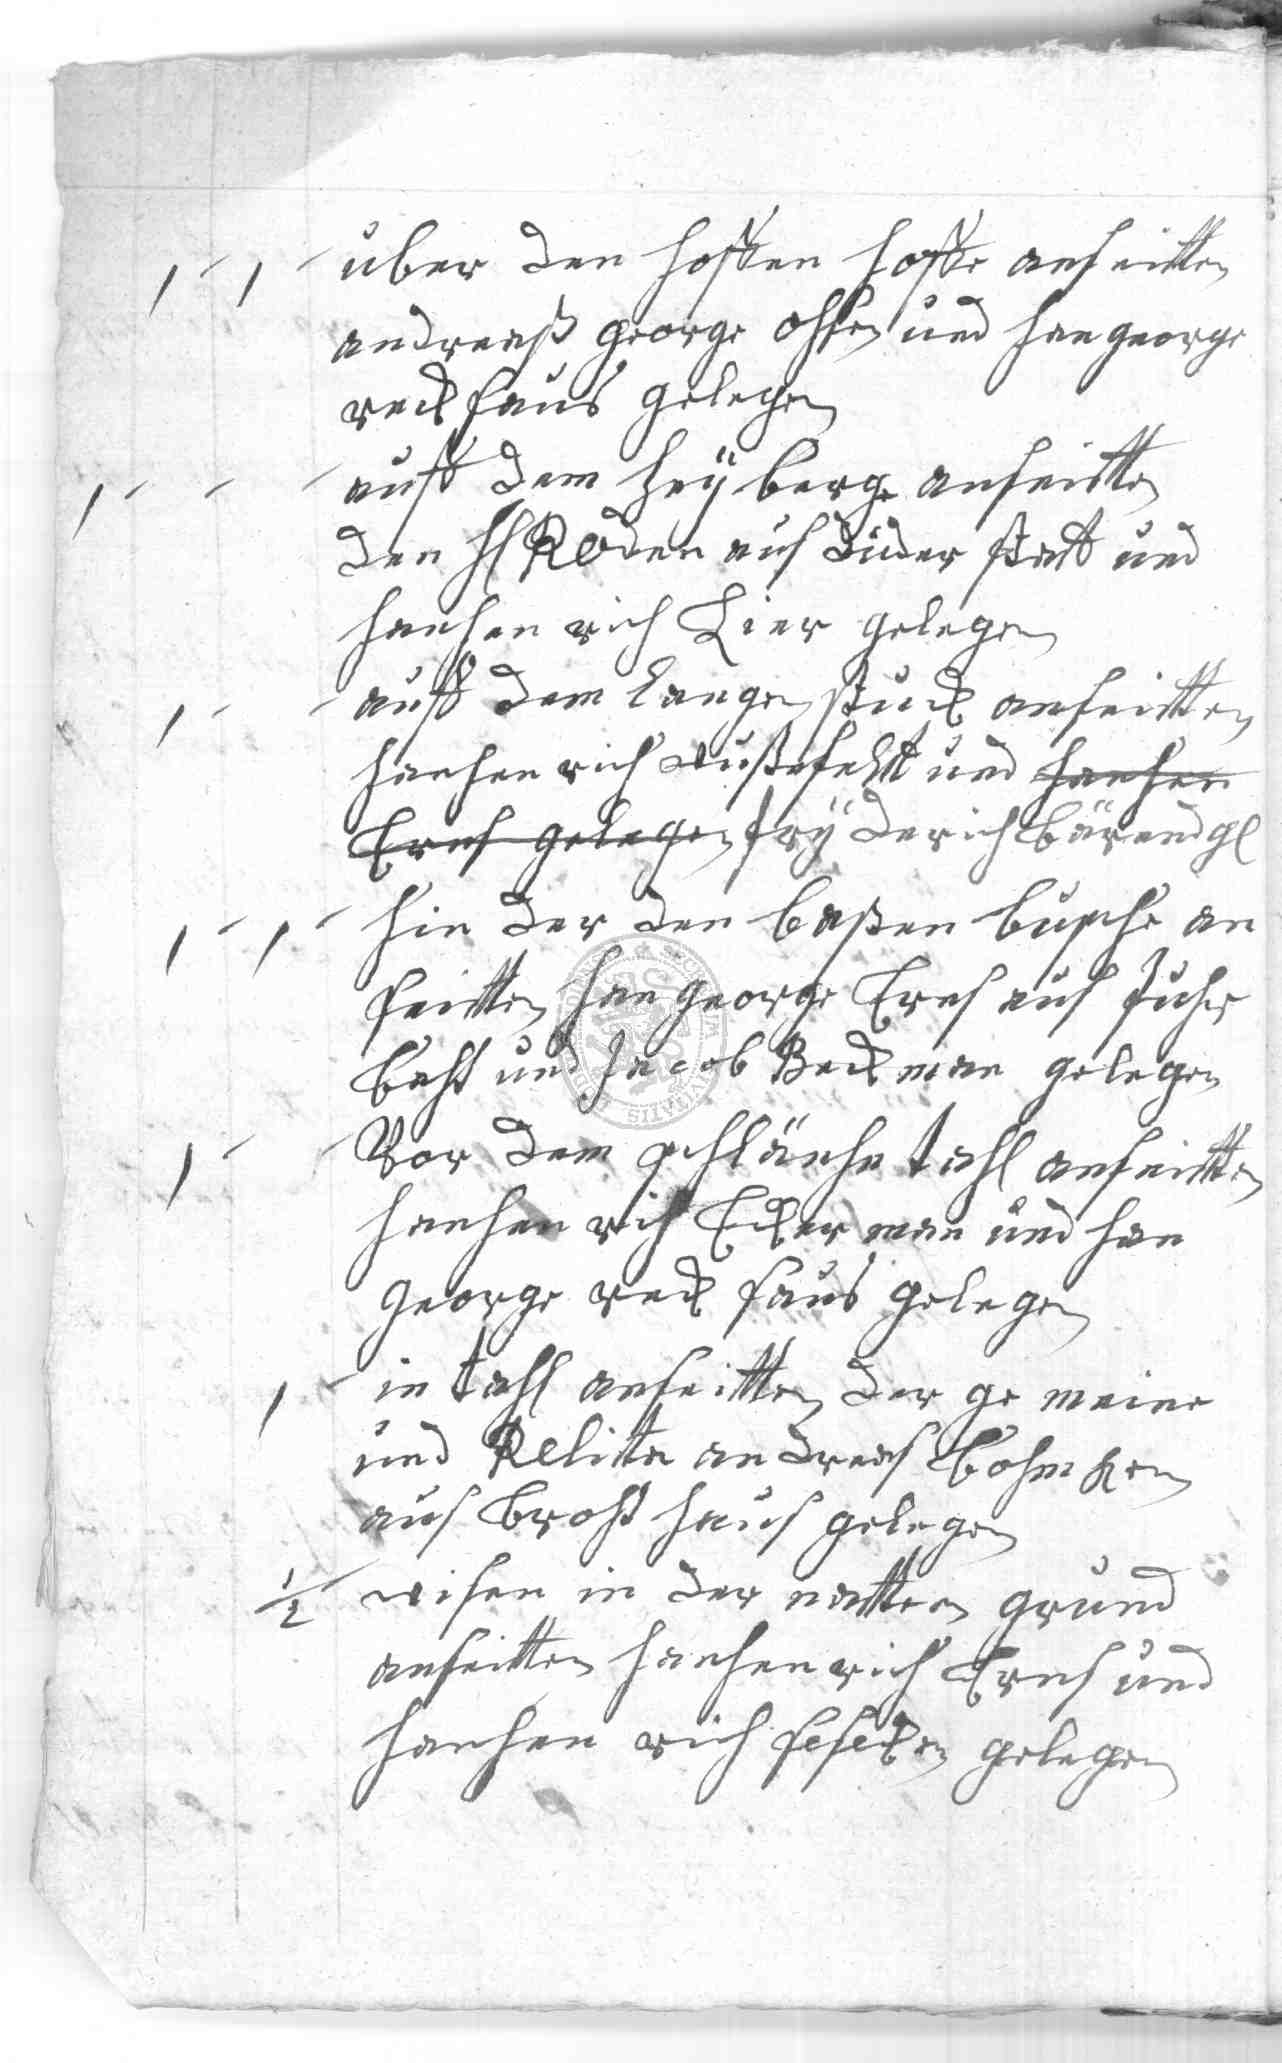 1 - 1 - über den hoffen hoffe anseitten
andreaß george ohsen und han george
reck haus gelegen
1 - - - auff dem heÿ berge anseitten
den H Röden aus duder statt und
hanhen rich Lier gelegen
1 - - auff dem langen stuck anseitten
hanhen rich wüstefeltt und hanhen
Ernst gelegen frÿ derich bärend gl
1 - 1 - hin der den basten busche an
seitten han george Ernst aus fuhr
bach und Jacob Beckman gelegen
1 - - Vor dem schlänhe tahl anseitten
hanhen rich Eckerman und han
george reck haus gelegen
1 - in tahl anseitten der ge meine
und Relitte andreas
aus broht haus gelegen
1/2 wisen in der natten grund
anseitten hanhen rich Ernst und
hanhen rich gelegen